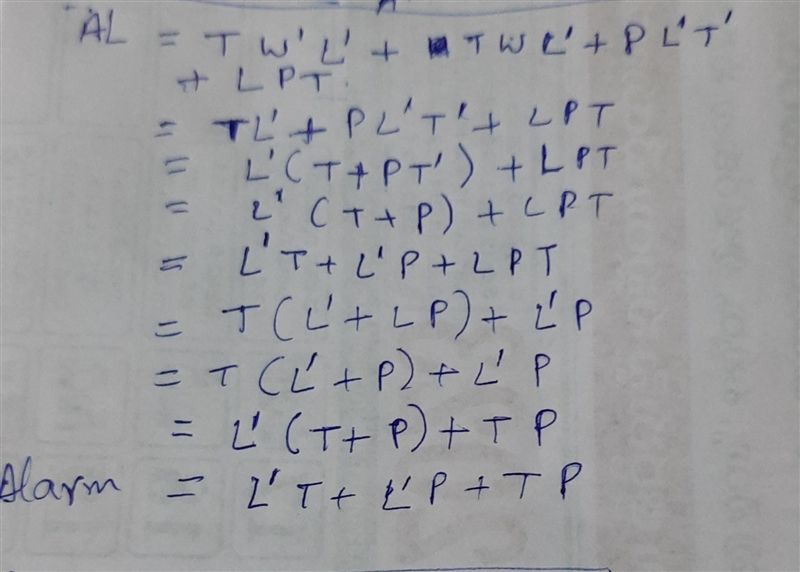 AL = T W' L' + T W L' + P L' T'
+ L P T
= T L' + P L' T' + L P T
= L' ( T + P T' ) + L P T
= L' ( T + P ) + L P T
= L' T + L' P + L P T
= T ( L' + L P ) + L' P
= T ( L' + P ) + L' P
= L' ( T + P ) + T P
Alarm = L' T + L' P + T P